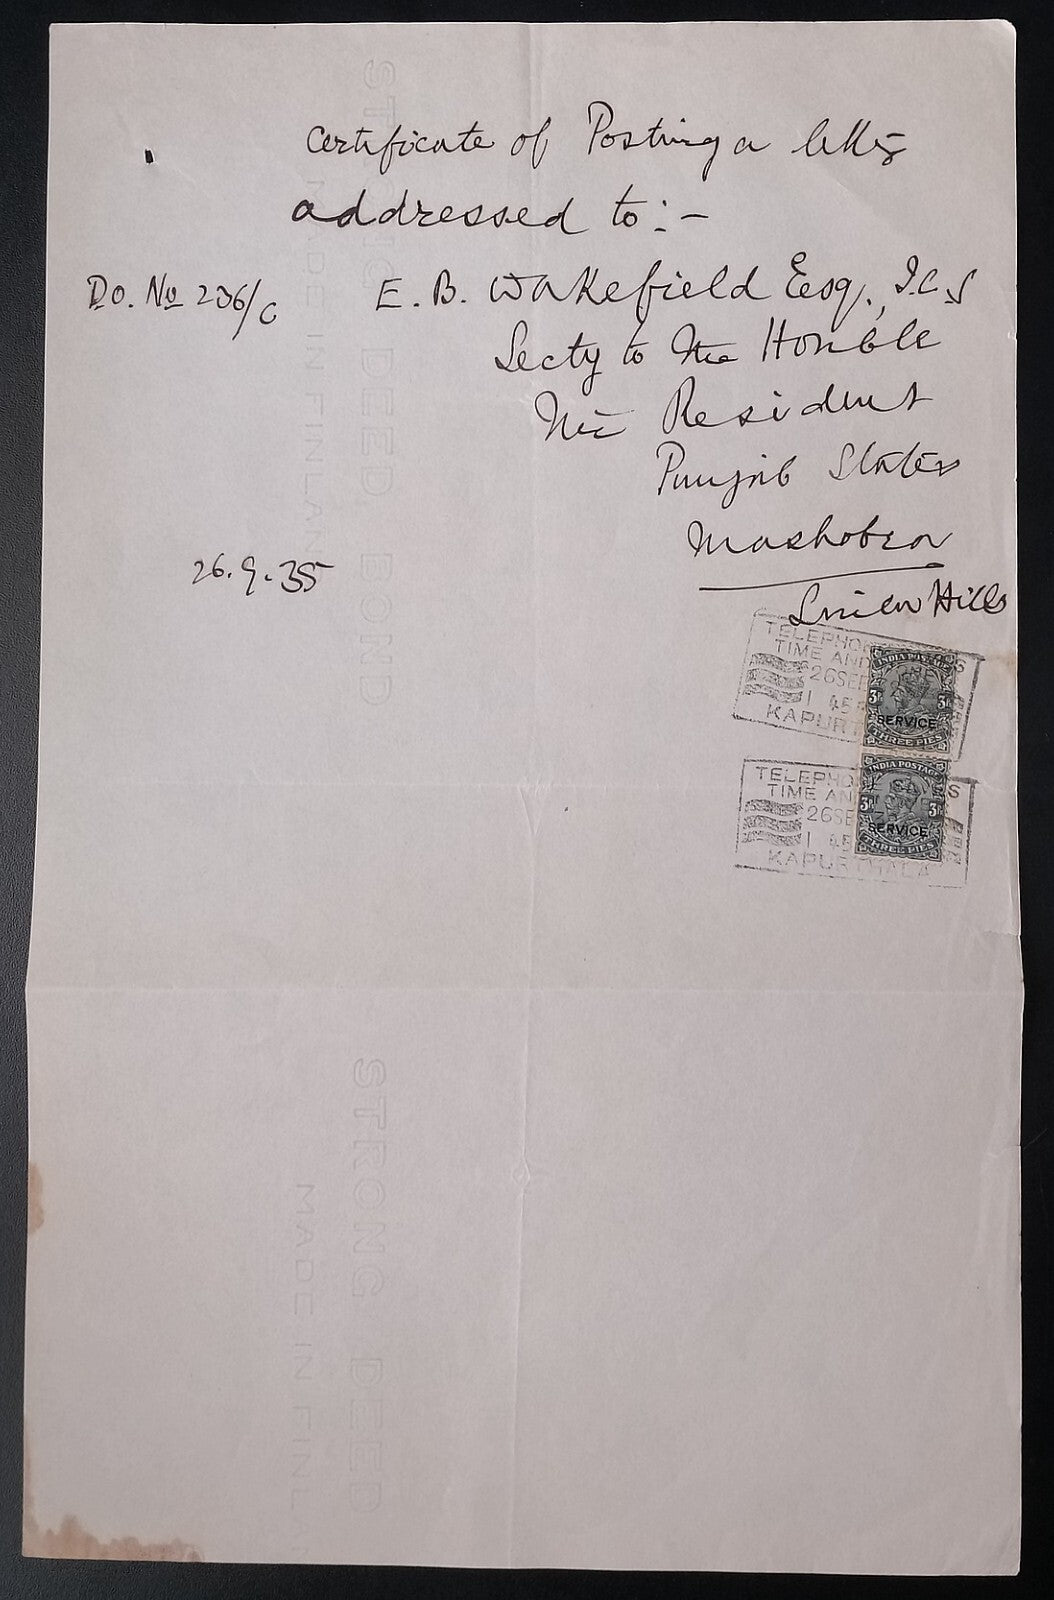 Certificate of Posting a letter
addressed to:-
D.O. No 236/C
E. B. Wakefield Esq., I.C.S
Secty to the Honble
The Resident
Punjab States
Mashobra
Simla Hills
26.9.35
TELEPHO S
TIME AND
26SEP
1 45
KAPURT
INDIA POSTAGE
3P 3P
SERVICE
THREE PIES
TELEPHO S
TIME AN
26SE
1 45
KAPURTHALA
INDIA POSTAGE
3P 3P
SERVICE
THREE PIES
STRONG DEED BOND
MADE IN FINLAND
STRONG DEED
MADE IN FINLAN